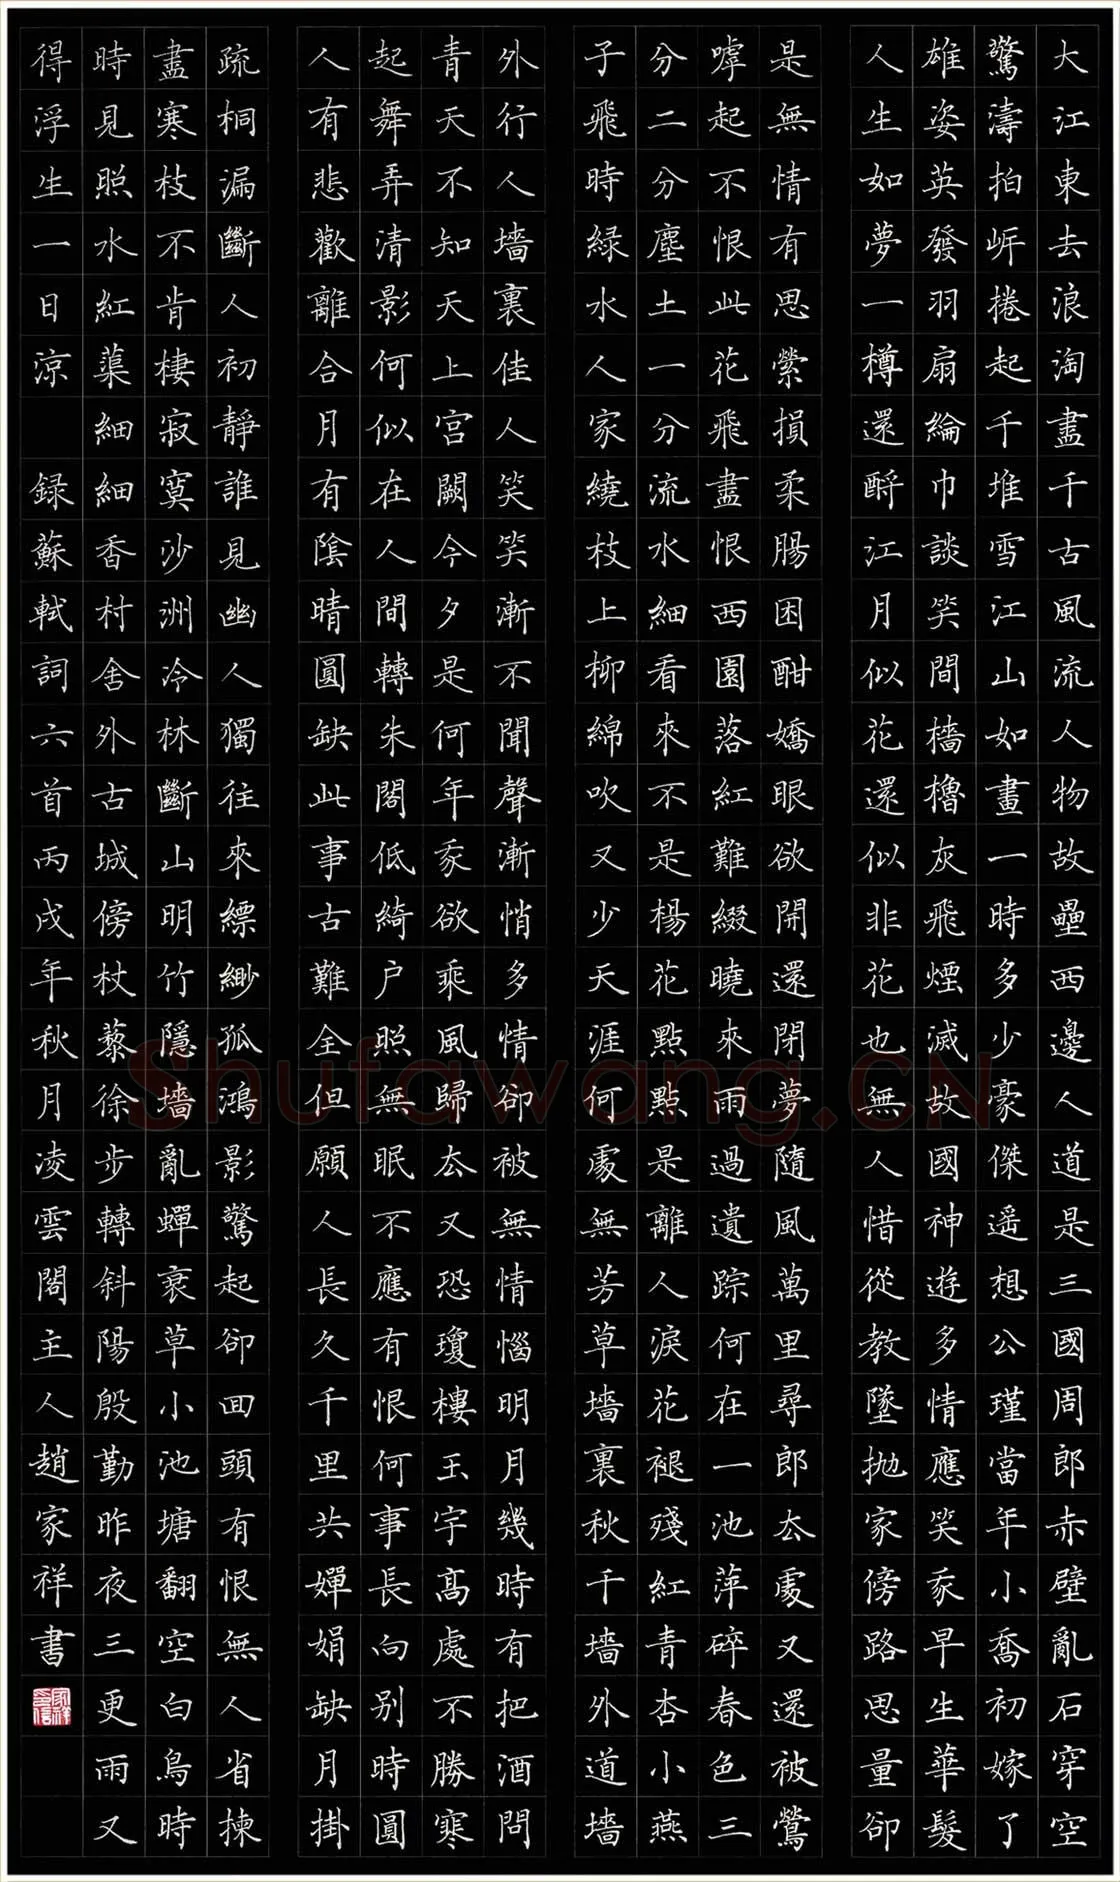 大江東去浪淘盡千古風流人物故壘西邊人道是三國周郎赤壁亂石穿空
驚濤拍岍捲起千堆雪江山如畫一時多少豪傑遥想公瑾當年小喬初嫁了
雄姿英發羽扇綸巾談笑間檣櫓灰飛煙滅故國神遊多情應笑我早生華髮
人生如夢一樽還酹江月似花還似非花也無人惜從教墜抛家傍路思量卻
是無情有思縈損柔腸困酣嬌眼欲開還閉夢隨風萬里尋郎去處又還被鶯
嘑起不恨此花飛盡恨西園落紅難綴曉來雨過遺踪何在一池萍碎春色三
分二分塵土一分流水細看來不是楊花點點是離人淚花褪殘紅青杏小燕
子飛時緑水人家繞枝上柳綿吹又少天涯何處無芳草墻裏秋千墻外道墻
外行人墻裏佳人笑笑漸不聞聲漸悄多情卻被無情惱明月幾時有把酒問
青天不知天上宮闕今夕是何年我欲乘風歸去又恐瓊樓玉宇高處不勝寒
起舞弄清影何似在人間轉朱閣低綺户照無眠不應有恨何事長向别時圓
人有悲歡離合月有陰晴圓缺此事古難全但願人長久千里共嬋娟缺月掛
疏桐漏斷人初靜誰見幽人獨往來縹緲孤鴻影驚起卻回頭有恨無人省揀
盡寒枝不肯棲寂寞沙洲冷林斷山明竹隱墻亂蟬衰草小池塘翻空白鳥時
時見照水紅蕖細細香村舍外古城傍杖藜徐步轉斜陽殷勤昨夜三更雨又
得浮生一日涼 録蘇軾詞六首丙戌年秋月凌雲閣主人趙家祥書
家祥印信
Shufawang.CN